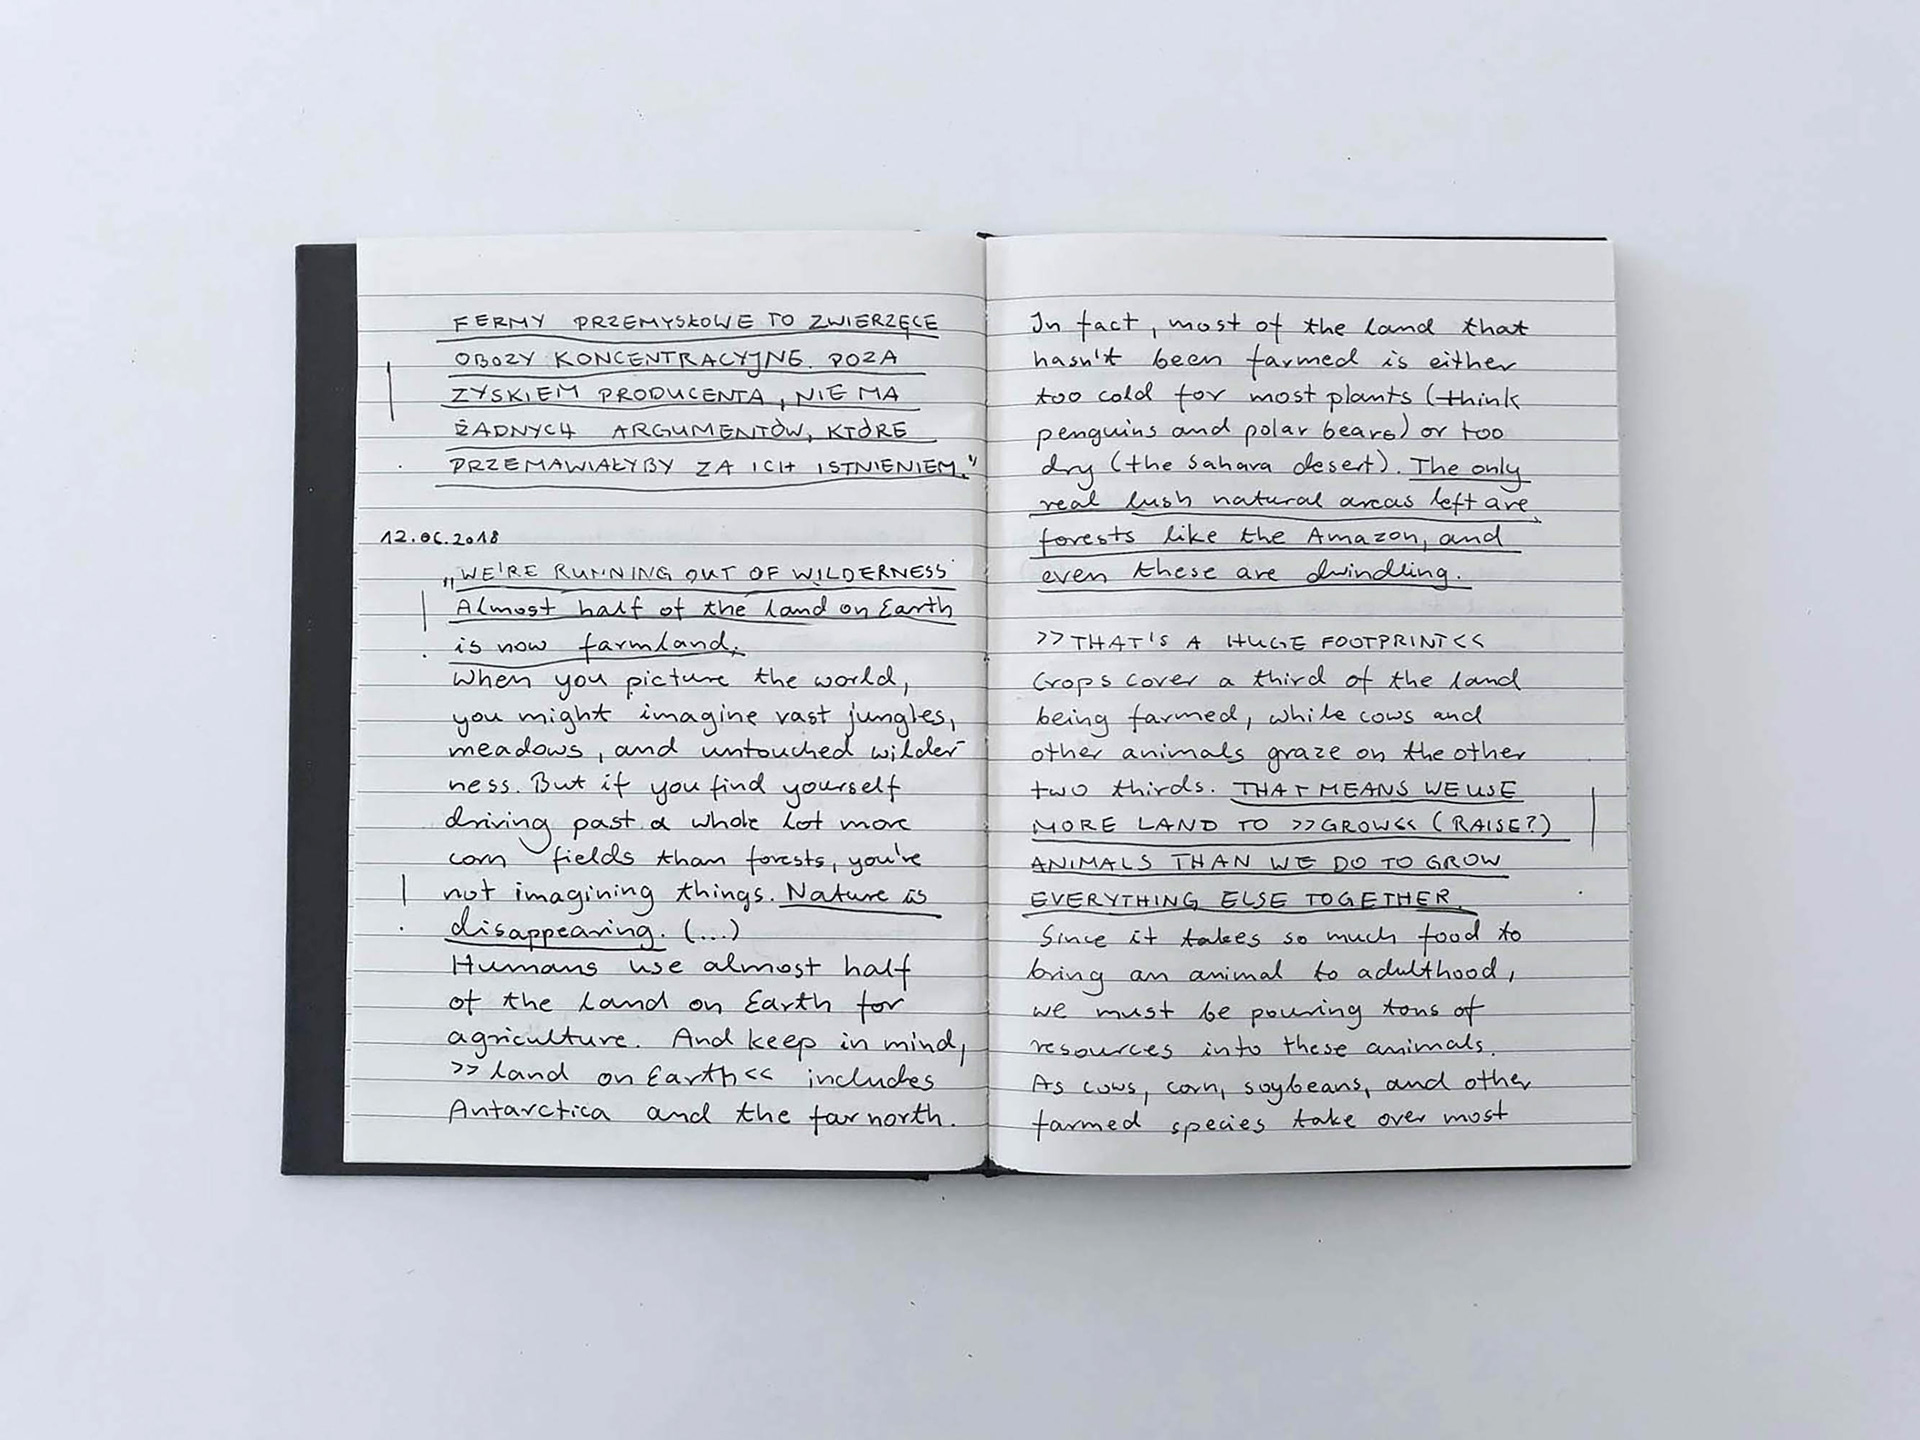 FERMY PRZEMYSŁOWE TO ZWIERZĘCE
OBOZY KONCENTRACYJNE. POZA
ZYSKIEM PRODUCENTA, NIE MA
ŻADNYCH ARGUMENTÓW, KTÓRE
PRZEMAWIAŁYBY ZA ICH ISTNIENIEM."
12.06.2018
„WE'RE RUNNING OUT OF WILDERNESS
Almost half of the land on Earth
is now farmland.
When you picture the world,
you might imagine vast jungles,
meadows, and untouched wilder-
ness. But if you find yourself
driving past a whole lot more
corn fields than forests, you're
not imagining things. Nature is
disappearing. (...)
Humans use almost half
of the land on Earth for
agriculture. And keep in mind,
>>land on Earth<< includes
Antarctica and the far north.
In fact, most of the land that
hasn't been farmed is either
too cold for most plants (think
penguins and polar bears) or too
dry (the Sahara desert). The only
real lush natural areas left are
forests like the Amazon, and
even these are dwindling.
>>THAT'S A HUGE FOOTPRINT<<
Crops cover a third of the land
being farmed, while cows and
other animals graze on the other
two thirds. THAT MEANS WE USE
MORE LAND TO >>GROW<< (RAISE?)
ANIMALS THAN WE DO TO GROW
EVERYTHING ELSE TOGETHER.
Since it takes so much food to
bring an animal to adulthood,
we must be pouring tons of
resources into these animals.
As cows, corn, soybeans, and other
farmed species take over most